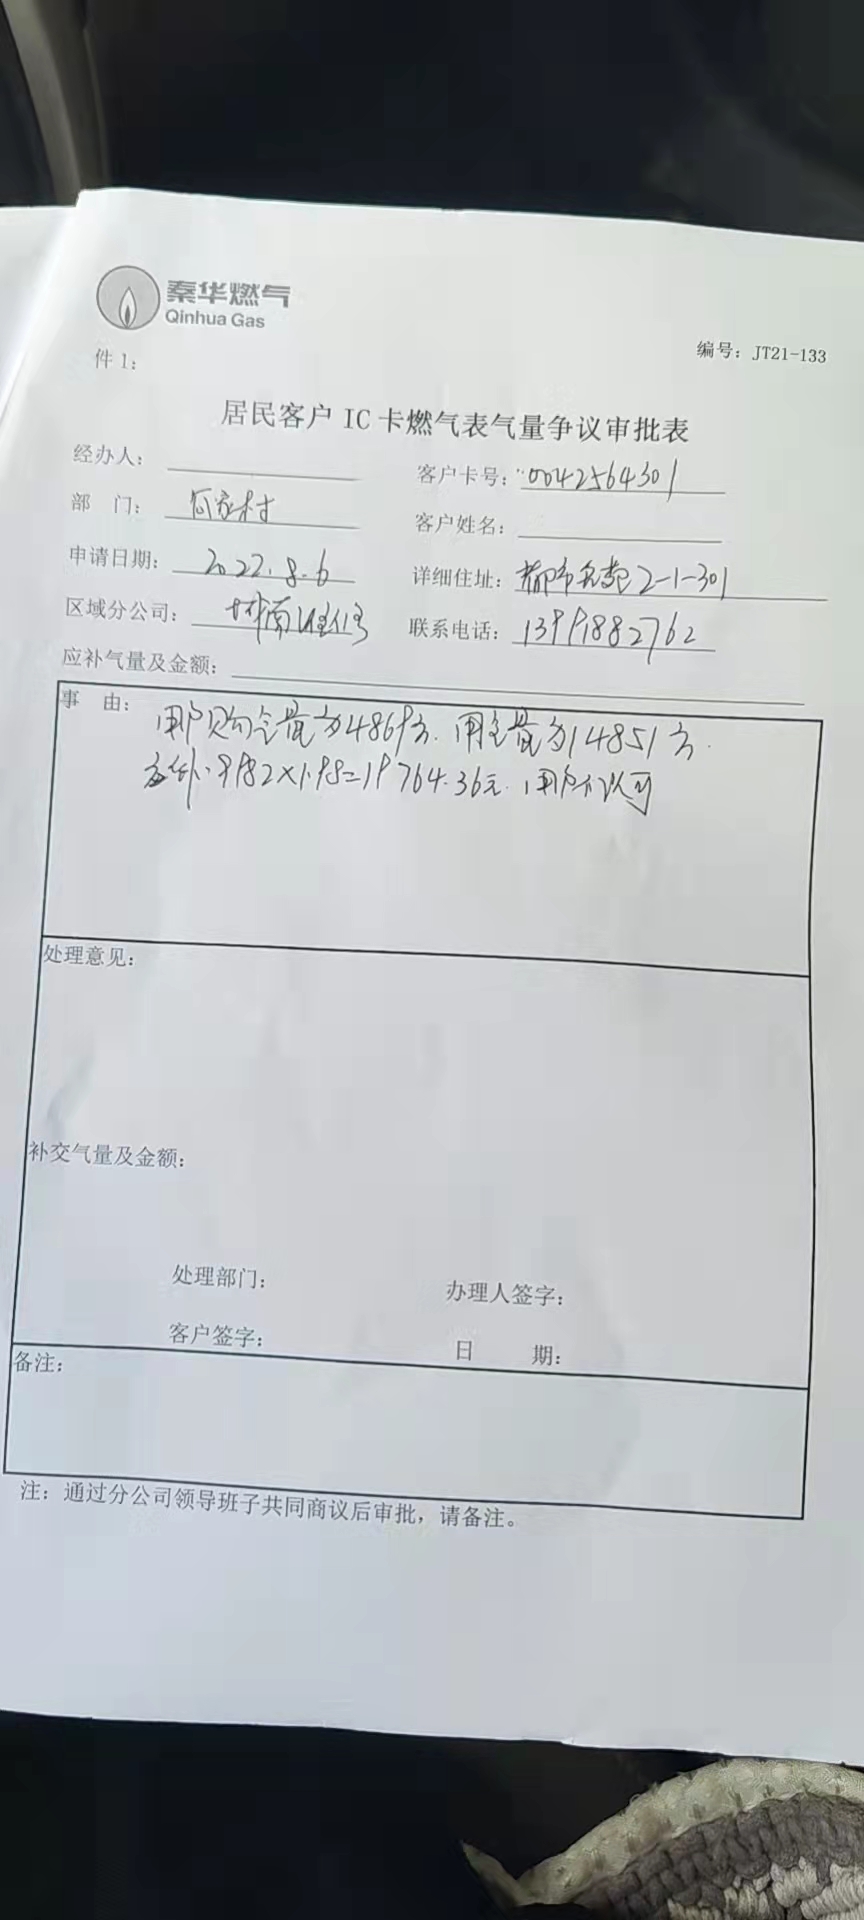 秦华燃气
Qinhua Gas
编号：JT21-133
件1：
居民客户IC卡燃气表气量争议审批表
经办人：
客户卡号：0042564301
部 门：何家村
客户姓名：
申请日期：2022.8.6
详细住址：都市 2-1-301
区域分公司：城南
联系电话：13991882762
应补气量及金额：
事 由：用户购气量为4869方. 用气量为14851方.
9982×1.98=19764.36元. 用户不认可
处理意见：
补交气量及金额：
处理部门：
办理人签字：
客户签字：
日 期：
备注：
注：通过分公司领导班子共同商议后审批，请备注。